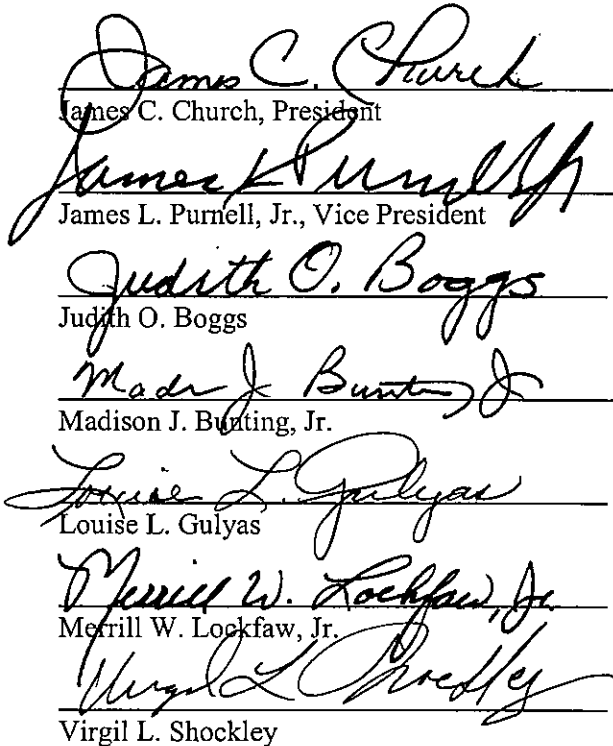 James C. Church
James C. Church, President
James L Purnell Jr
James L. Purnell, Jr., Vice President
Judith O. Boggs
Judith O. Boggs
Madi J Bunting Jr
Madison J. Bunting, Jr.
Louise L. Gulyas
Louise L. Gulyas
Merrill W. Lockfaw, Jr.
Merrill W. Lockfaw, Jr.
Virgil L Shockley
Virgil L. Shockley